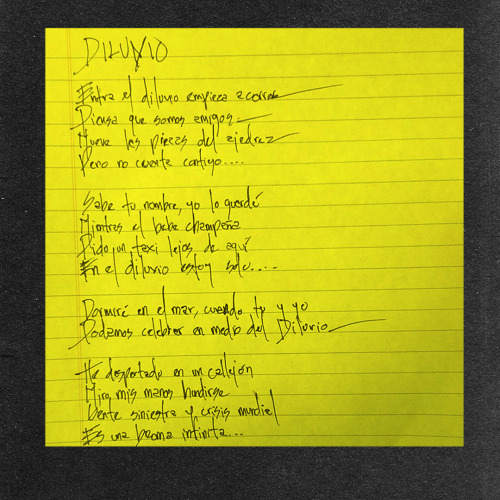 DILUVIO
Entra el diluvio empieza a correr
Piensa que somos amigos
Mueve las piezas del ajedrez
Pero no cuente contigo....
Sabe tu nombre, yo lo guardé
Mientras el bebe champaña
Pido un taxi lejos de aquí
En el diluvio estoy solo....
Dormiré en el mar, cuando tu y yo
Podamos celebrar en medio del Diluvio
He despertado en un callejón
Mira mis manos hundirse
Gente siniestra y crisis mundial
Es una broma infinita...